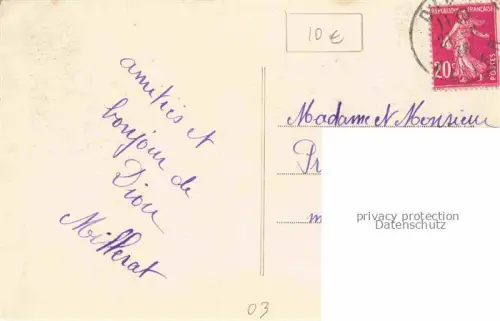 10€
RÉPUBLIQUE FRANÇAISE
20c
POSTES
amitiés et
bonjour de
Diou
Milferat
Madame et Monsieur
Pr
m
privacy protection
Datenschutz
03